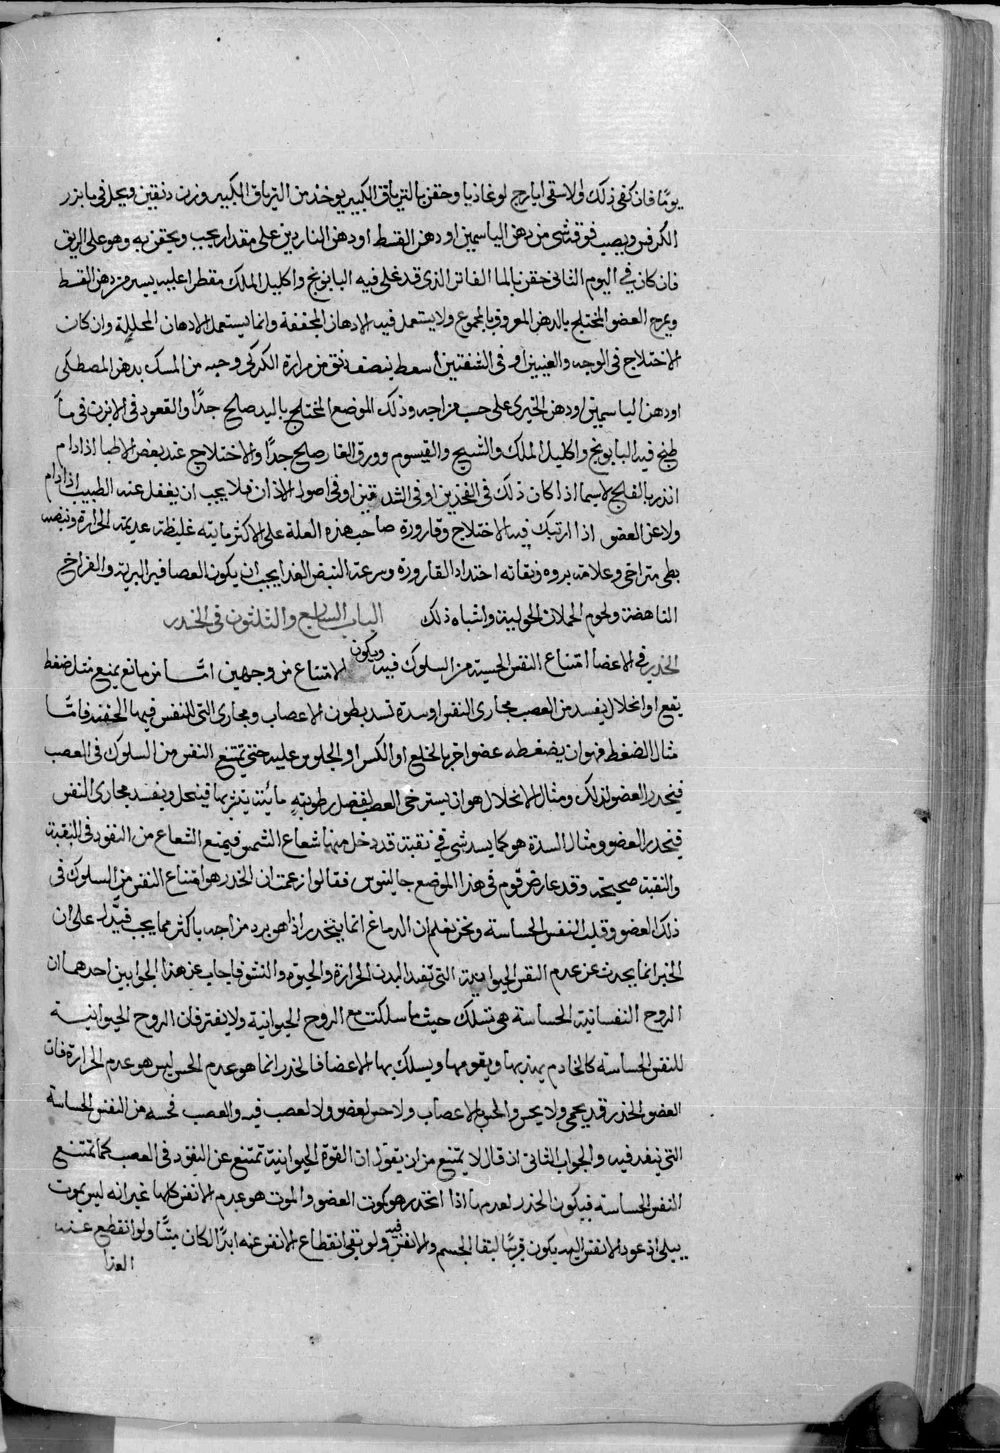 يومًا فان كفى ذلك والا سقى ايارج لوغاذيا وحقن بالترياق الكبير يوخذ من الترياق الكبير وزن دنقين ويحل في ما بزر
الكرفس ويصب فوقه شى من دهن الياسمين او دهن القسط او دهن الناردين على مقدار يجب ويحقن به وهو على الريق
فان كان في اليوم الثانى حقن بالما الفاتر الذى قد غلى فيه البابونج واكليل الملك مقطرا عليه يسير من دهن القسط
ويمرج العضو المختلج بالدهن المعروف بالمجموع ولا يستعمل فيه الادهان المجففة وانما يستعمل الادهان المحللة وان كان
الاختلاج في الوجه والعينين او في الشفتين اسعط بنصف دنق من مرارة الكركى وحبه من المسك بدهن المصطكى
او دهن الياسمين او دهن الخيرى على حسب مزاجه وذلك الموضع المختلج باليد صالح جدًا والقعود في الابزن في ماء
طبخ فيه البابونج واكليل الملك والشيح والقيسوم وورق الغار صالح جدًا والاختلاج عند بعض الاطبا اذا دام
انذر بالفالج لاسيما اذا كان ذلك في الفخذين او في الشدقين او في اصول الاذان فلا يجب ان يغفل عنه الطبيب اذا دام
ولا عن العضو اذا ارتبك فيه الاختلاج وقارورة صاحب هذه العلة على الاكثر مائية غليظة عديمة الحرارة ونبضه
بطى متراخى وعلامة بروه ونقائه احتداد القارورة وسرعة النبض الغدا يجب ان يكون العصافير البرية والفراخ
الناهضة ولحوم الحملان الحولية واشباه ذلك الباب السابع والثلثون في الخدر
الخدر في الاعضا امتناع النفس الحسية من السلوك فيه ويكون الامتناع من وجهين امّا من مانع يمنع مثل ضغط
يقع او انحلال يفسد من العصب مجارى النفس او سدة تسد بطون الاعصاب ومجارى التى للنفس فيها الحقنه فامّا
مثال الضغط فهو ان يضغطه عضو اخر بالخلع او الكسر او الجلوس عليه حتى تمتنع النفس من السلوك في العصب
فيخدر العضو لذلك ومثال الانحلال هو ان يسترخى العصب لفضل رطوبة مائية يتشربها فينحل ويفسد مجارى النفس
فيخدر العضو ومثال السدة هو كما يسد شى في ثقبة قد دخل منها شعاع الشمس فيمنع الشعاع من النفود في الثقبة
والثقبة صحيحة وقد عارض قوم في هذا الموضع جالينوس فقالوا زعمت ان الخدر هو امتناع النفس من السلوك في
ذلك العضو وقلت النفس الحساسة ونحن نعلم ان الدماغ انما يتخدر اذا هو برد مزاجه باكثر مما يجب فيدل على ان
الخدر انما يحدث عن عدم النفس الحيوانية التى تفيد البدن الحرارة والحيوة والنشو فاجاب عن هذا بجوابين احدهما ان
الروح النفسانية الحساسة هى تسلك حيث ما سلكت مع الروح الحيوانية ولا يفترقان الروح الحيوانية
للنفس الحساسة كالخادم يهذبها ويقومها ويسلك بها الاعضا فالخدر انما هو عدم الحس ليس هو عدم الحرارة فان
العضو الخدر قد يحمى ولا يحس والحس بالاعصاب ولا حس لعضو ولا لعصب فيه والعصب فحسه من النفس الحساسة
التى تنفد فيه والجواب الثانى ان قال لا يمتنع من ان يقول ان القوة الحيوانية تمتنع عن النفود في العصب كما تمتنع
النفس الحساسة فيكون الخدر لعدمها اذا الخدر هو كموت العضو والموت هو عدم الانفس كلها غير انه ليس يموت
يبلى اذ عود الانفس اليه يكون قريبًا لبقا الجسم والانفس فيه ولو بقى انقطاع الانفس عنه ابدًا لكان ميتًا ولو انقطع عنه
الغذا